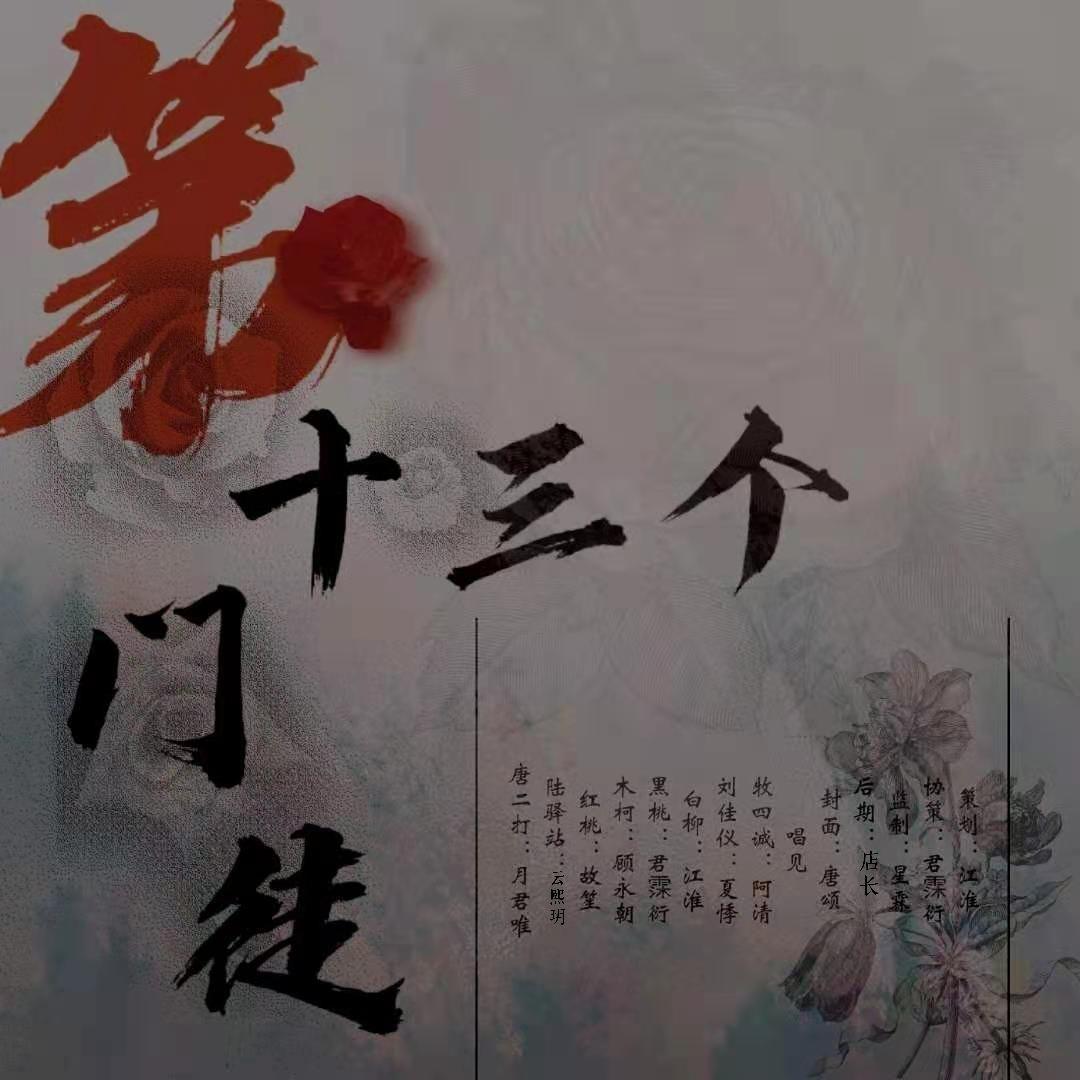 第
十三个
门徒
策划：江淮
协策：君霂衍
监制：星霖
后期：店长
封面：唐颂
唱见
牧四诚：阿清
刘佳仪：夏悸
白柳：江淮
黑桃：君霂衍
木柯：顾永朝
红桃：故笙
陆驿站：云熙玥
唐二打：月君唯